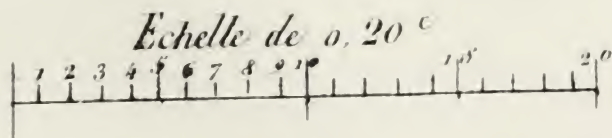 Echelle de 0,20 c
1 2 3 4 5 6 7 8 9 10 15 20